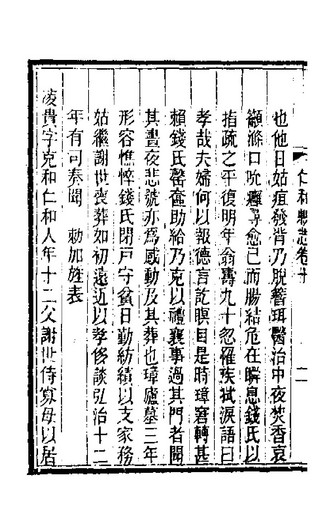 仁和縣志卷十
二
也他日姑疽發背乃脫簪珥醫治中夜焚香哀
籲滌口吮癰尋愈已而腸結危在瞬息錢氏以
指疏之平復明年翁壽九十忽罹疾拭淚語曰
孝哉夫婦何以報德言訖瞑目是時璋窘轉甚
賴錢氏罄奩助給乃克以禮襄事過其門者聞
其晝夜悲號亦為感動及其葬也璋廬墓三年
形容憔悴錢氏閉戶守貧日勤紡績以支家務
姑繼謝世喪葬如初遠近以孝侈談弘治十二
年有司奏聞 勅加旌表
凌貴字克和仁和人年十二父謝世侍寡母以居